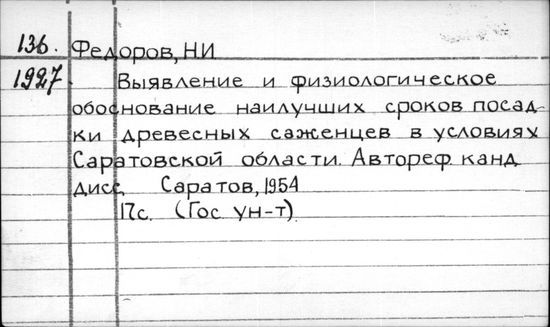 136. Федоров, НИ
1927. Выявление и физиологическое
обоснование наилучших сроков посад-
ки древесных саженцев в условиях
Саратовской области. Автореф. канд
дисс Саратов, 1954
17с. (Гос ун-т)